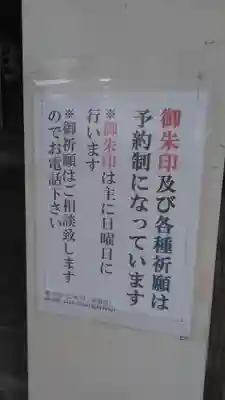 御朱印及び各種祈願は
予約制になっています
※御朱印は主に日曜日に
行います
※御祈願はご相談致します
のでお電話下さい